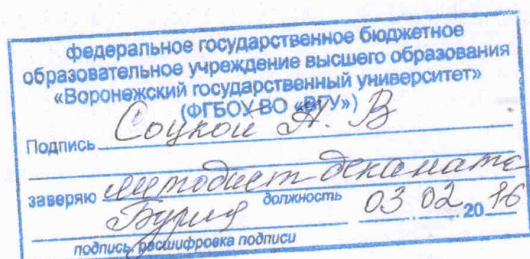 федеральное государственное бюджетное
образовательное учреждение высшего образования
«Воронежский государственный университет»
(ФГБОУ ВО «ВГУ»)
Подпись Соцкой А. В
заверяю методист деканата
должность
03 02 2016
подпись, расшифровка подписи